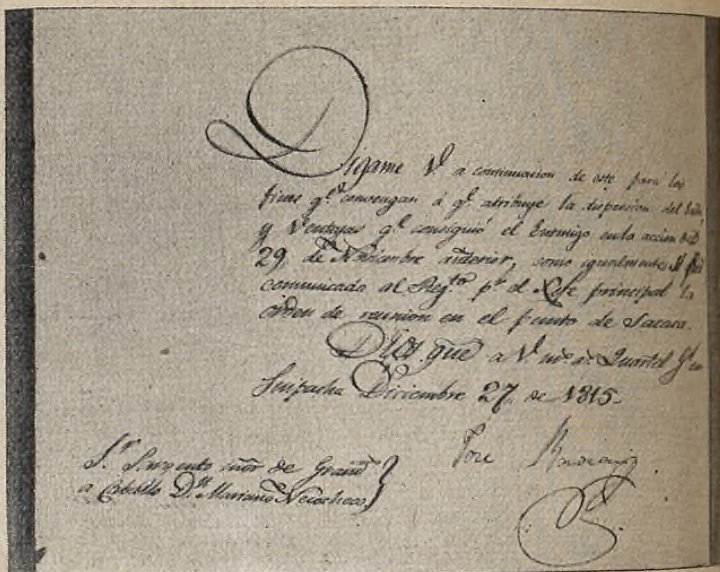 Digame V. a continuacion de este para los
fines q.e convengan á q.e atribuye la dispersion del
y Ventajas q.e consiguió el Enemigo en la accion del
29, de Noviembre anterior, como igualmente si fué
comunicada al Rej.to p.r el Xefe principal la
orden de reunion en el punto de Sacaca.
Dios gũe a V. m.s a.s Quartel G.l en
Suipacha Diciembre 27, de 1815.
Jose
S.r Sargento mõr de Granad.s
a Caballo D.n Mariano Necochea